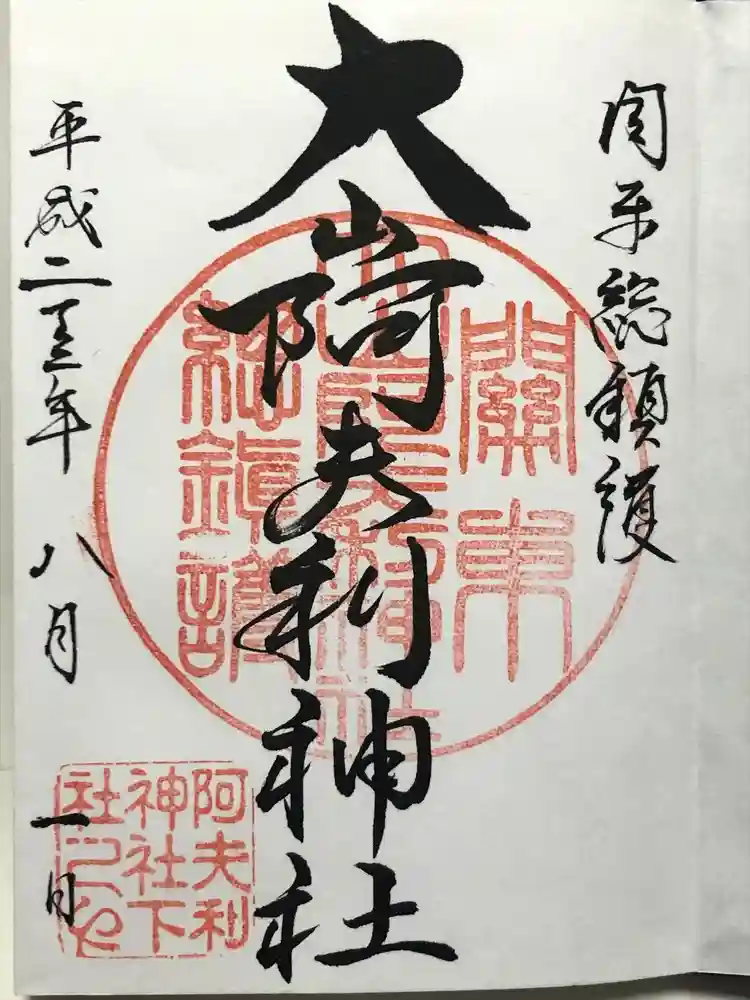 関東総鎮護
大山阿夫利神社
平成二十三年 八月 一日
關東
大山阿夫利神社
總鎮護
阿夫利
神社下
社之印